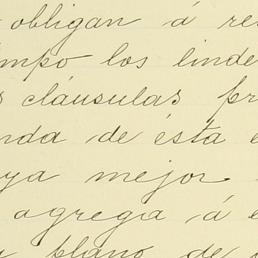 obligan á res
mpo los linde
s cláusulas pr
nda de ésta e
ya mejor
agrega á e
y plano de